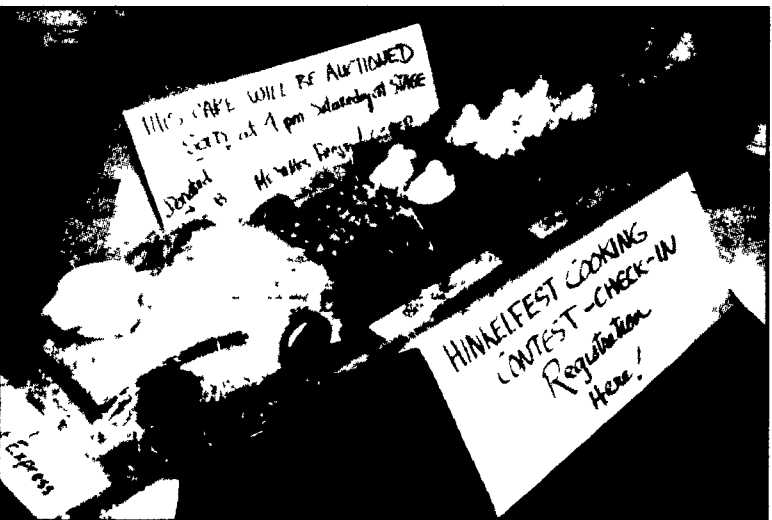 THIS CAKE WILL BE AUCTIONED
at 1 pm Saturday at STAGE
Donated
HINKELFEST COOKING
CONTEST-CHECK-IN
Registration
Here!
Express